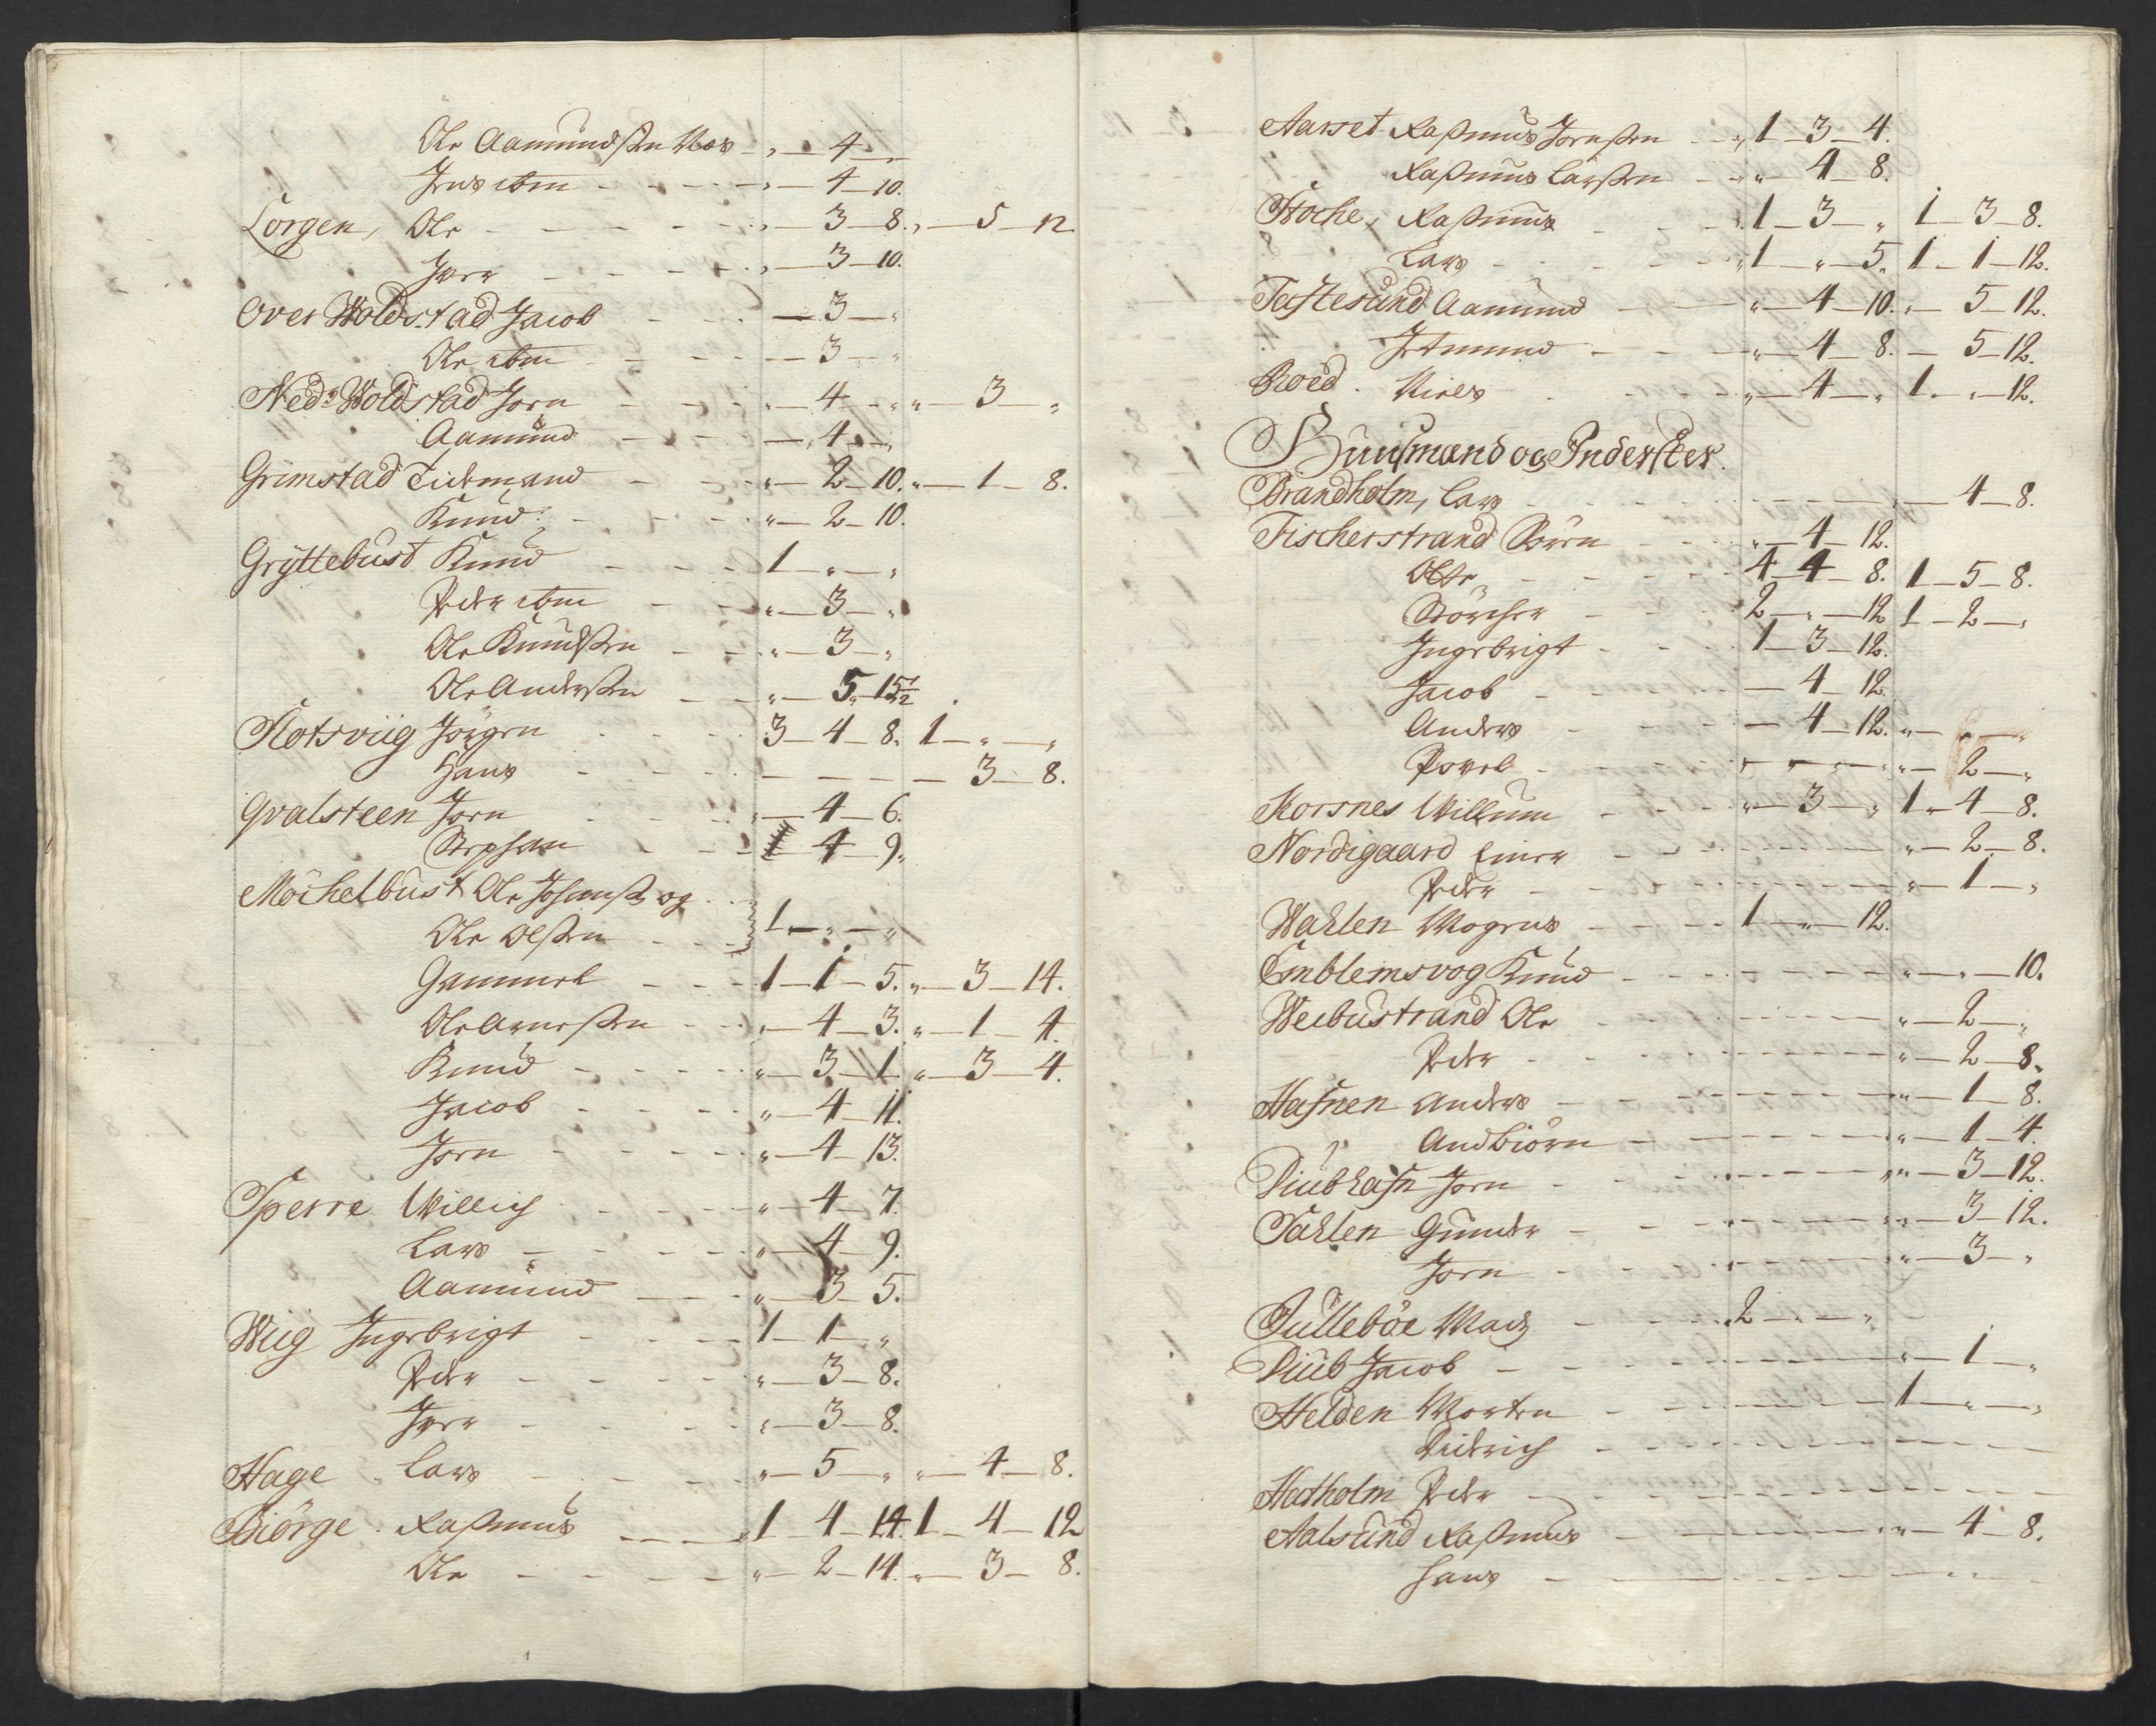 Ole Aamundsen Næs „ — 4 — „
Jens ibm „ — 4 — 10.
Lorgen, Ole „ — 3 — 8. „ — 5 — 12
Iver „ — 3 — 10.
Over Woldstad Jacob — 3 — „
Ole ibm — 3 — „
Ned: Woldstad Jorn „ — 4 — „ „ — 3 — „
Aamund — 4 — „
Grimstad Tidemand „ — 2 — 10. „ — 1 — 8.
Knud „ — 2 — 10.
Gryttebust Knud 1 — „ — „
Peder ibm „ — 3 — „
Ole Knudsen „ — 3 — „
Ole Andersen „ — 5 — 15½
Flotsviig Jørgen 3 — 4 — 8. 1 — „ — „
Hans — — — — 3 — 8.
Qvalsteen Jorn — 4 — 6.
Stephan 4 — 9.
Möchelbust Ole Johans: og
Ole Olsen 1 — „ — „
Gammel 1 — 1 — 5. „ — 3 — 14.
Ole Arnesen „ — 4 — 3. „ — 1 — 4.
Knud „ — 3 — 1 „ — 3 — 4.
Jacob „ — 4 — 11.
Jorn „ — 4 — 13.
Sperre Willich „ — 4 — 7.
Lars „ — 4 — 9.
Aamund „ — 3 — 5.
Wiig Ingebrigt 1 — 1 — „
Peder „ — 3 — 8.
Iver „ — 3 — 8.
Hage Lars „ — 5 — „ „ — 4 — 8.
Biörge Rasmus 1 — 4 — 14. 1 — 4 — 12
Ole „ — 2 — 14. „ — 3 — 8.
Aarset Rasmus Jornsen 1 — 3 — 4.
Rasmus Larsen „ — 4 — 8.
Stoche, Rasmus 1 — 3 — „ 1 — 3 — 8.
Lars 1 — „ — 5. 1 — 1 — 12.
Taftesund Aamund „ — 4 — 10. „ — 5 — 12.
Jetmund „ — 4 — 8. — 5 — 12.
Roed. Niels „ — 4 — „ 1 — „ — 12.
Huusmænd og Inderster.
Brandholm, Lars — 4 — 8.
Fischerstrand Sören „ — 4 — 12.
Olle 4 — 4 — 8. 1 — 5 — 8.
Störcher 2 — „ — 12 1 — 2 — „
Ingebrigt 1 — 3 — 12.
Jacob — 4 — 12.
Anders — 4 — 12. „ — „ — „
Povel „ — 2 — „
Korsnes Willum „ — 3 — „ 1 — 4 — 8.
Nordigaard Einer „ — 2 — 8.
Peder „ — 1 — „
Wahlen Mogens 1 — „ — 12.
Emblemsvog Knud „ — „ — 10.
Weibustrand Ole „ — 2 — „
Peder „ — 2 — 8.
Hafnen Anders „ — 1 — 8.
Andbiörn „ — 1 — 4.
Diubhafn Jorn „ — 3 — 12.
Dahlen Gunder „ — 3 — 12.
Jorn „ — 3 — „
Gulleböe Mads 2 — „ — „
Diub Jacob „ — 1 — „
Helden Morten 1 — „ — „
Didrich
Hestholm Peder
Aalsund Rasmus „ — 4 — 8.
Hans